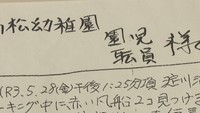 松幼稚園
園児
職員 様
(R3.5.28(金)午後1:25分頃 淀川
ーキング中に赤い風船2コ見つける